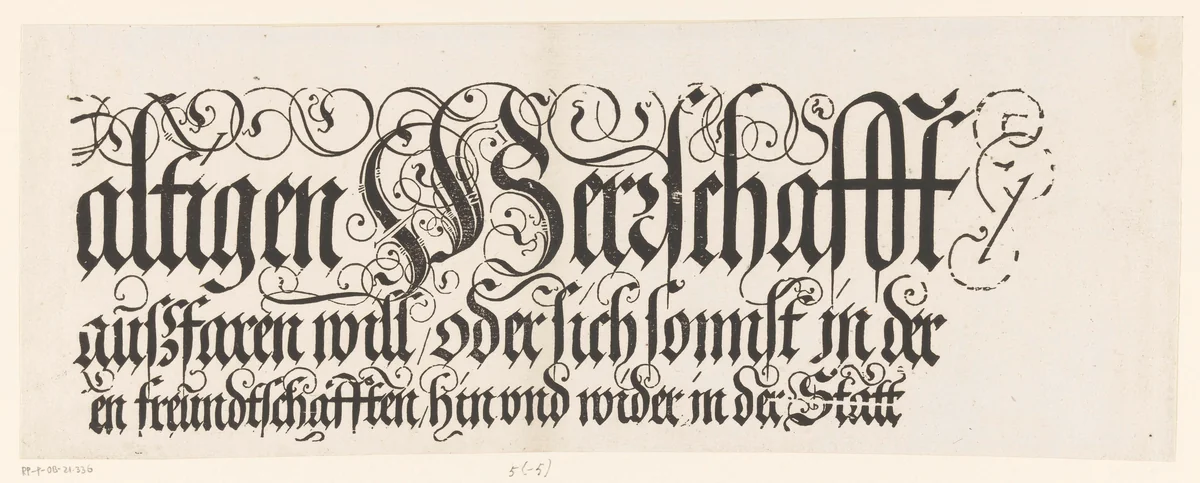 altigen Herrschafft /
ausszfaren will / oder sich sonnst in der
en freündtschafften / hin vnd wider in der Statt
RP-P-OB-21.336
5(-5)